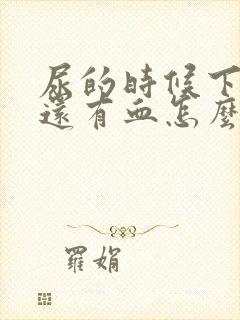 尿的時候下
還有血怎麼
羅娟